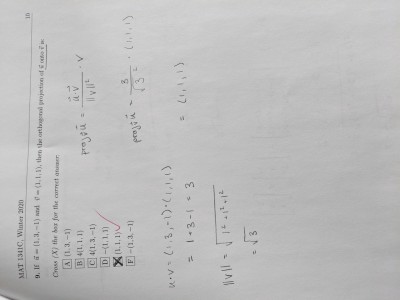 MAT 1341C, Winter 2020 10
9. If u⃗ = (1, 3, −1) and v⃗ = (1, 1, 1), then the orthogonal projection of u⃗ onto v⃗ is:
Cross (X) the box for the correct answer:
A (1, 3, −1)
B 4(1, 1, 1)
C 4(1, 3, −1)
D −(1, 1, 1)
X (1, 1, 1) ✓
F −(1, 3, −1)
proj v⃗ u⃗ = u⃗·v⃗ / ||v||² · v
proj v⃗ u⃗ = 3 / √3² · (1,1,1)
= (1,1,1)
u·v = (1,3,-1)·(1,1,1)
= 1+3-1 = 3
||v|| = √1²+1²+1²
= √3